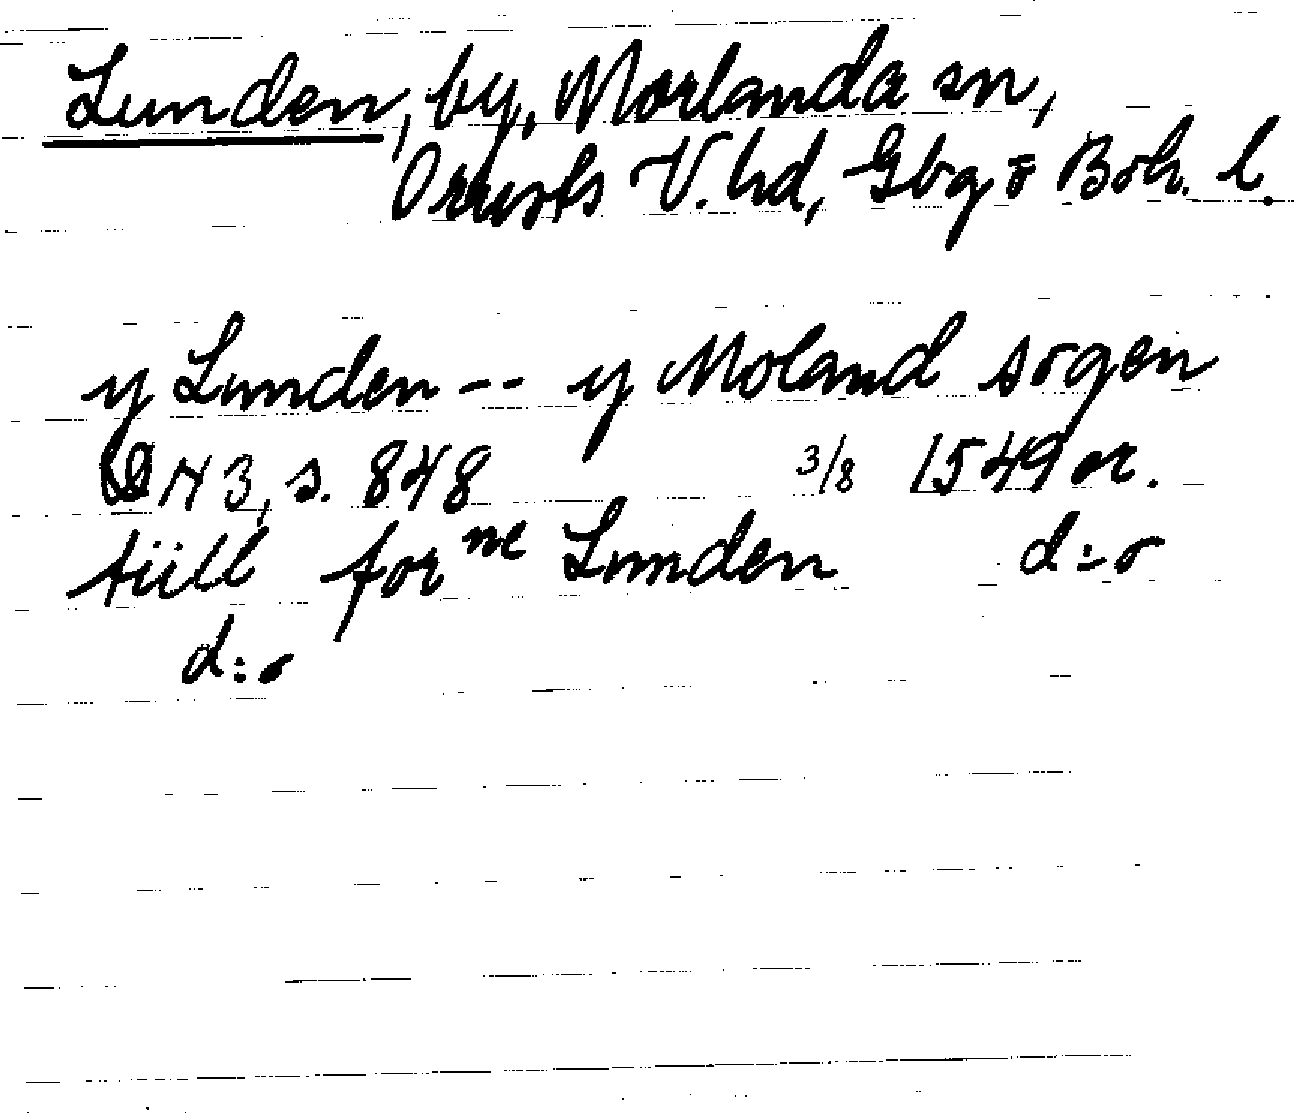 Lunden, by, Morlanda sn,
Orusts V. hd, Gbg o Boh. l.
y Lunden -- y Moland sogen
NM 3, s. 848 3/8 1549 or.
tüll for ne Lunden d:o
d:o